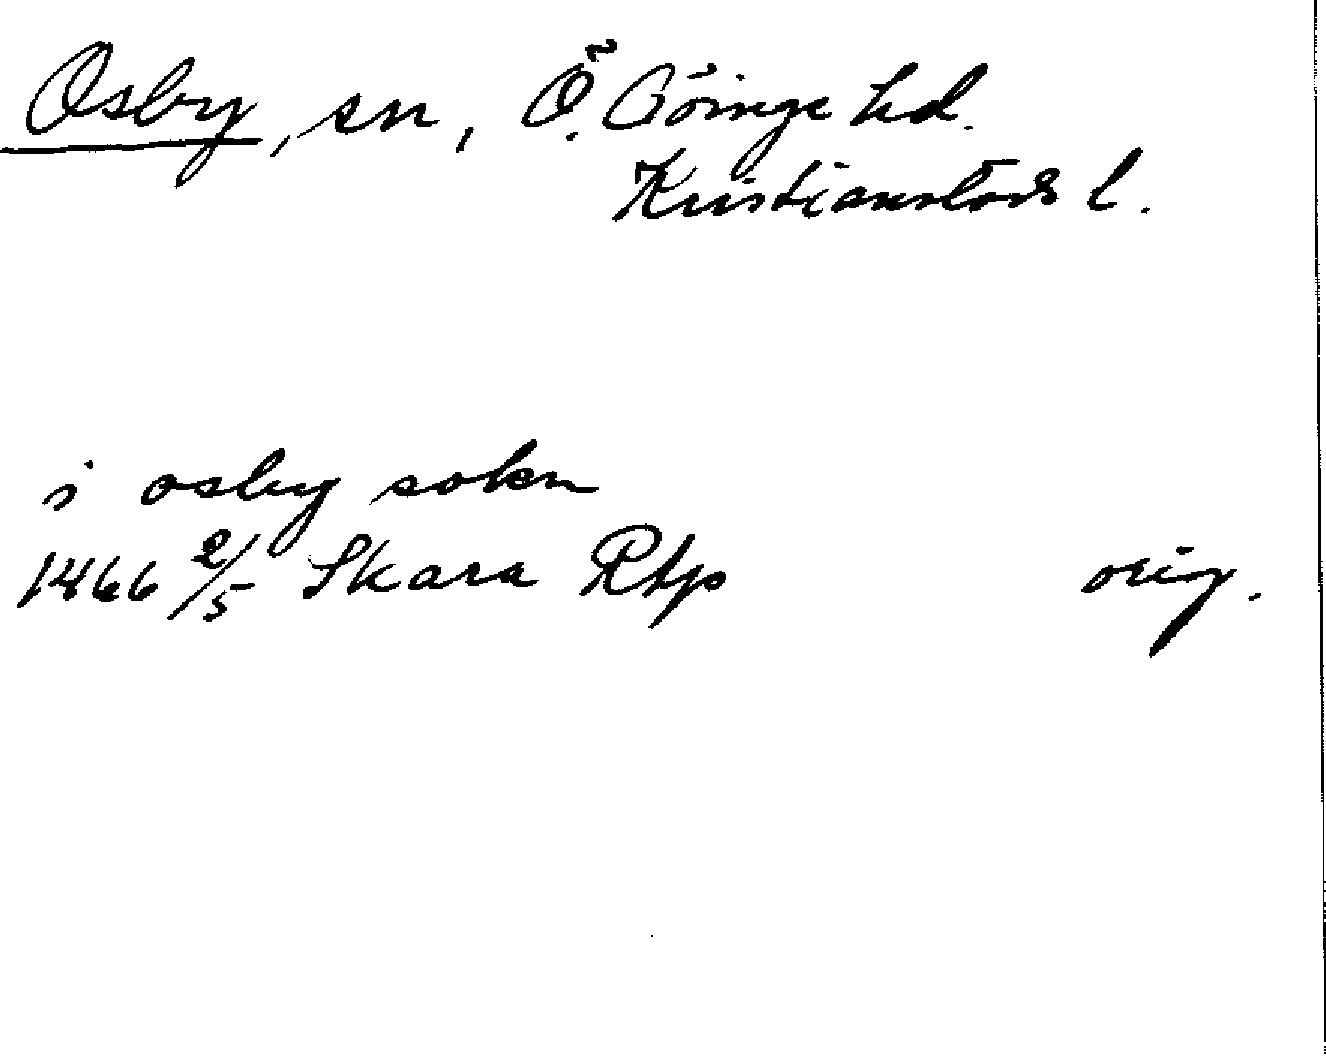 Osby, sn, Ö. Göinge hd.
Kristianstads l.
i osby sokn
1466 2/5 Skara Rtp orig.